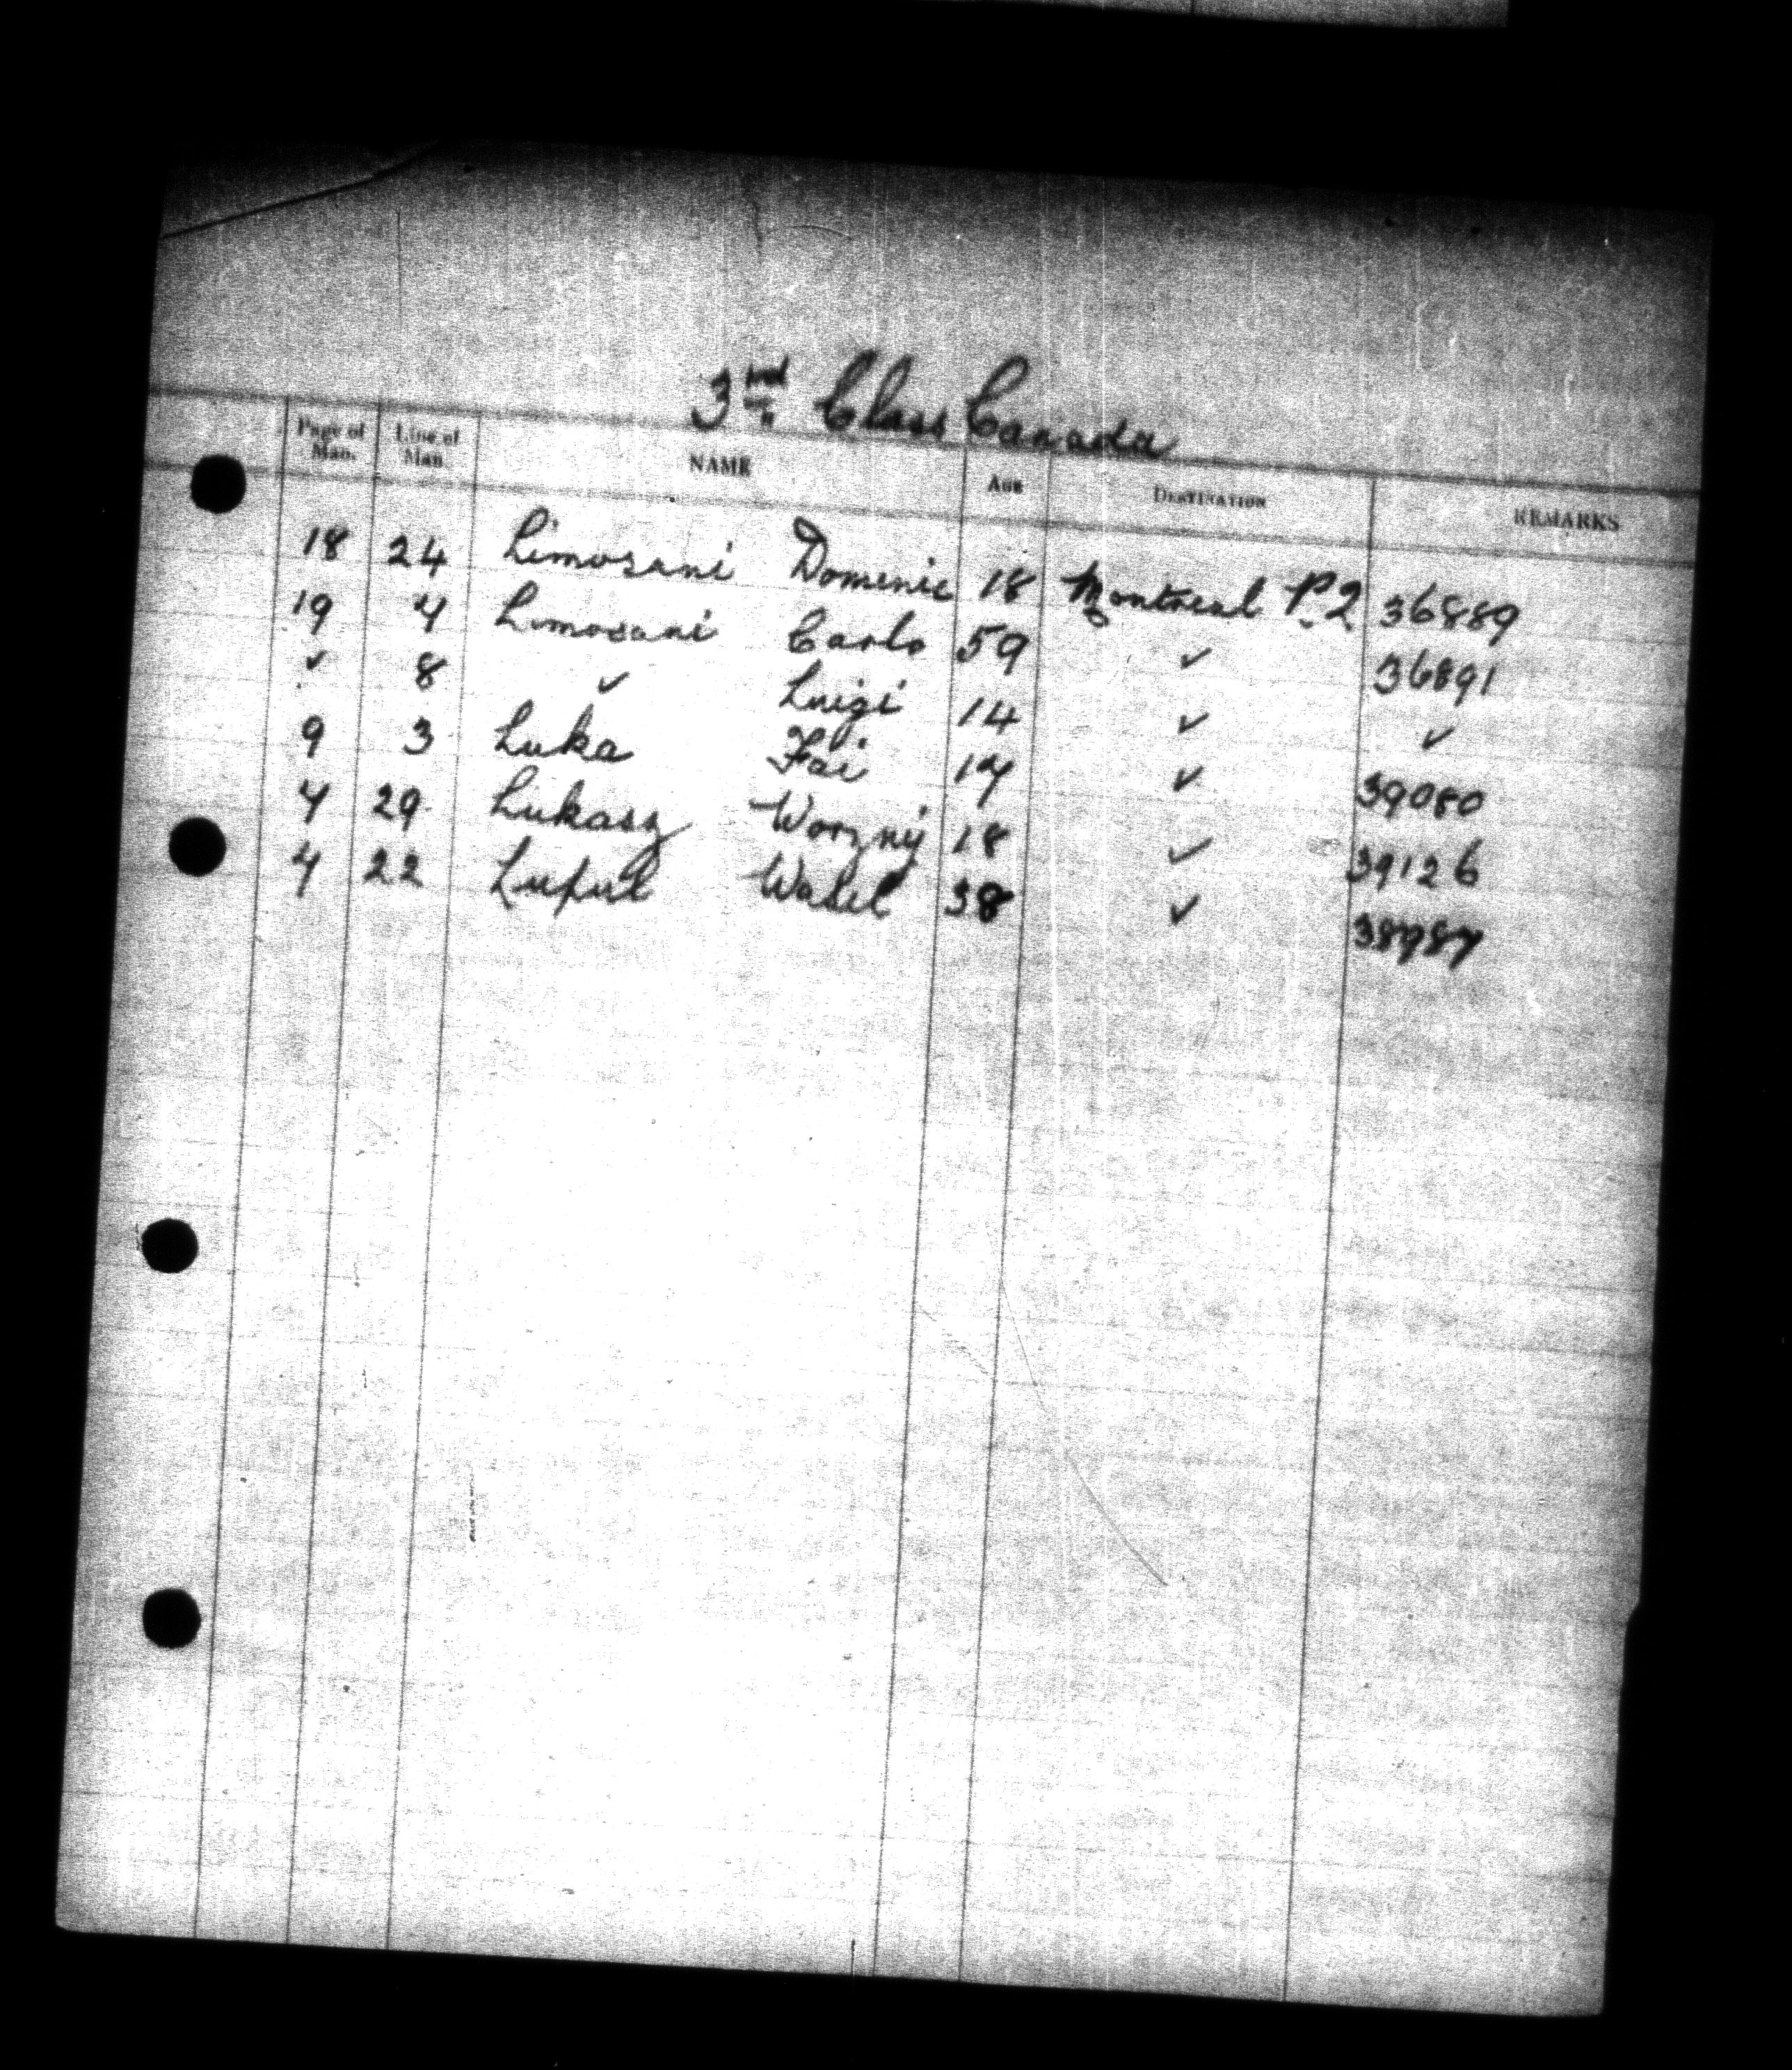 3rd Class Canada
Page of Man. Line of Man NAME AGE DESTINATION REMARKS
18 24 Limosani Domenic 18 Montreal P.2 36889
19 7 Limosani Carlo 59 ✓ 36891
✓ 8 ✓ Luigi 14 ✓ ✓
9 3 Luka Fai 17 ✓ 39080
7 29 Lukasz Worzny 18 ✓ 39126
7 22 Lupul Wasil 38 ✓ 38987